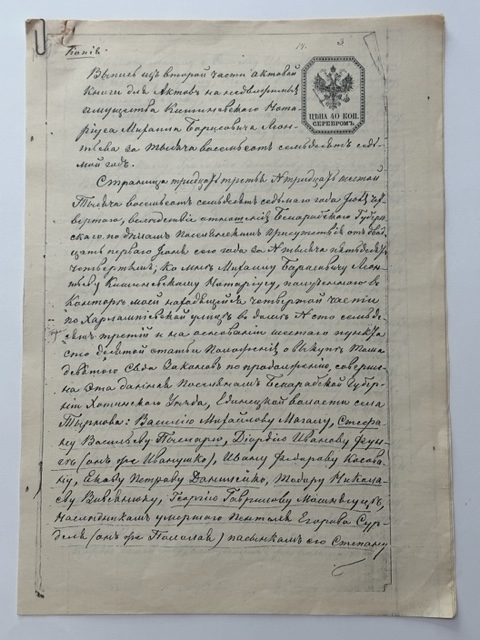 Копія.
Выпись изъ второй части актовой
книги для актовъ на недвижимыя
имущества Кишиневскаго Нота-
ріуса Михаила Борисовича Леон-
тьева за тысяча восемьсотъ семьдесятъ седь-
мой годъ.
ЦѢНА 40 КОП.
СЕРЕБРОМЪ.
Страница тридцать третья N тридцать шестой
Тысяча восемьсотъ семьдесятъ седьмаго года Іюля чет-
вертаго, вслѣдствіе отношенія Бессарабскаго Губерн-
скаго по дѣламъ Поселянскимъ Присутствія отъ двад-
цать перваго Іюня сего года за N тысяча пятьдесятъ
четвертымъ, ко мнѣ Михаилу Борисовичу Леон-
тьеву Кишиневскому Нотаріусу, полученнаго въ
конторѣ моей находящейся четвертой части
по Харлампіевской улицѣ въ домѣ N сто семьде-
сятъ третій и на основаніи шестаго пункта
сто девятой статьи Положенія о выкупѣ Тома
девятаго Свода Законовъ по продолженію, соверше-
на эта данная Поселянамъ Бессарабской Губер-
ніи Хотинскаго Уѣзда, Единецкой волости села
Тырнова: Василію Михайлову Магалу, Стефа-
ну Васильеву
Діордію Иванову
(онъ же Иванушко), Ивану Федорову
Якову Петрову Данилейко, Тодору Никола-
еву
Георгію Гаврилову
Наслѣдникамъ умершаго Пантелея Егорова Сур-
дела (онъ же
) пасынкамъ его Степану